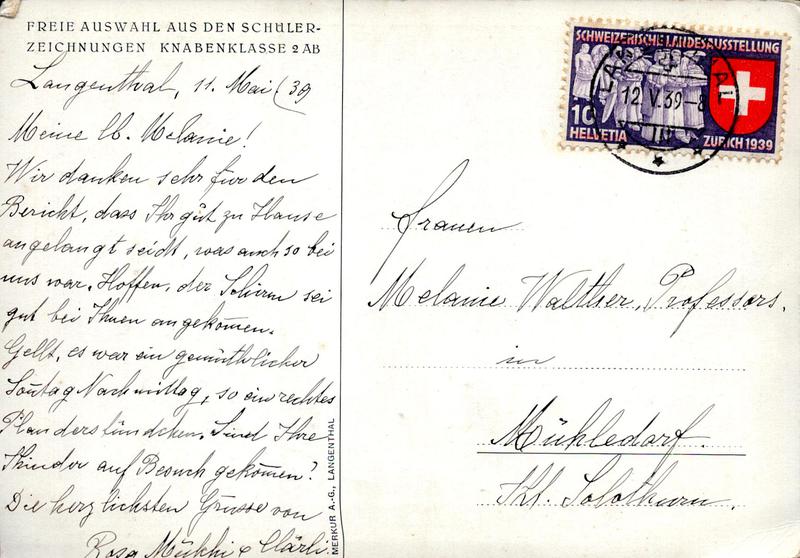 FREIE AUSWAHL AUS DEN SCHÜLER-
ZEICHNUNGEN KNABENKLASSE 2 AB
Langenthal, 11. Mai 39
Meine lb. Melanie!
Wir danken sehr für den
Bericht, dass Ihr gut zu Hause
angelangt seidt, was auch so bei
uns war. Hoffen, der Schirm sei
gut bei Ihnen angekom̄en.
Gellt, es war ein gemüthlicher
Son̄tag Nachmittag, so ein rechtes
Plauderstündchen. Sind Ihre
Kinder auf Besuch gekom̄en?
Die herzlichsten Grüsse von
Rosa & Clärli
MERKUR A.-G., LANGENTHAL
SCHWEIZERISCHE LANDESAUSSTELLUNG
10
HELVETIA
ZÜRICH 1939
LANGENTHAL
12.V.39-8
Frauen
Melanie Walther, Professors,
in
Mühledorf.
Kt. Solothurn.